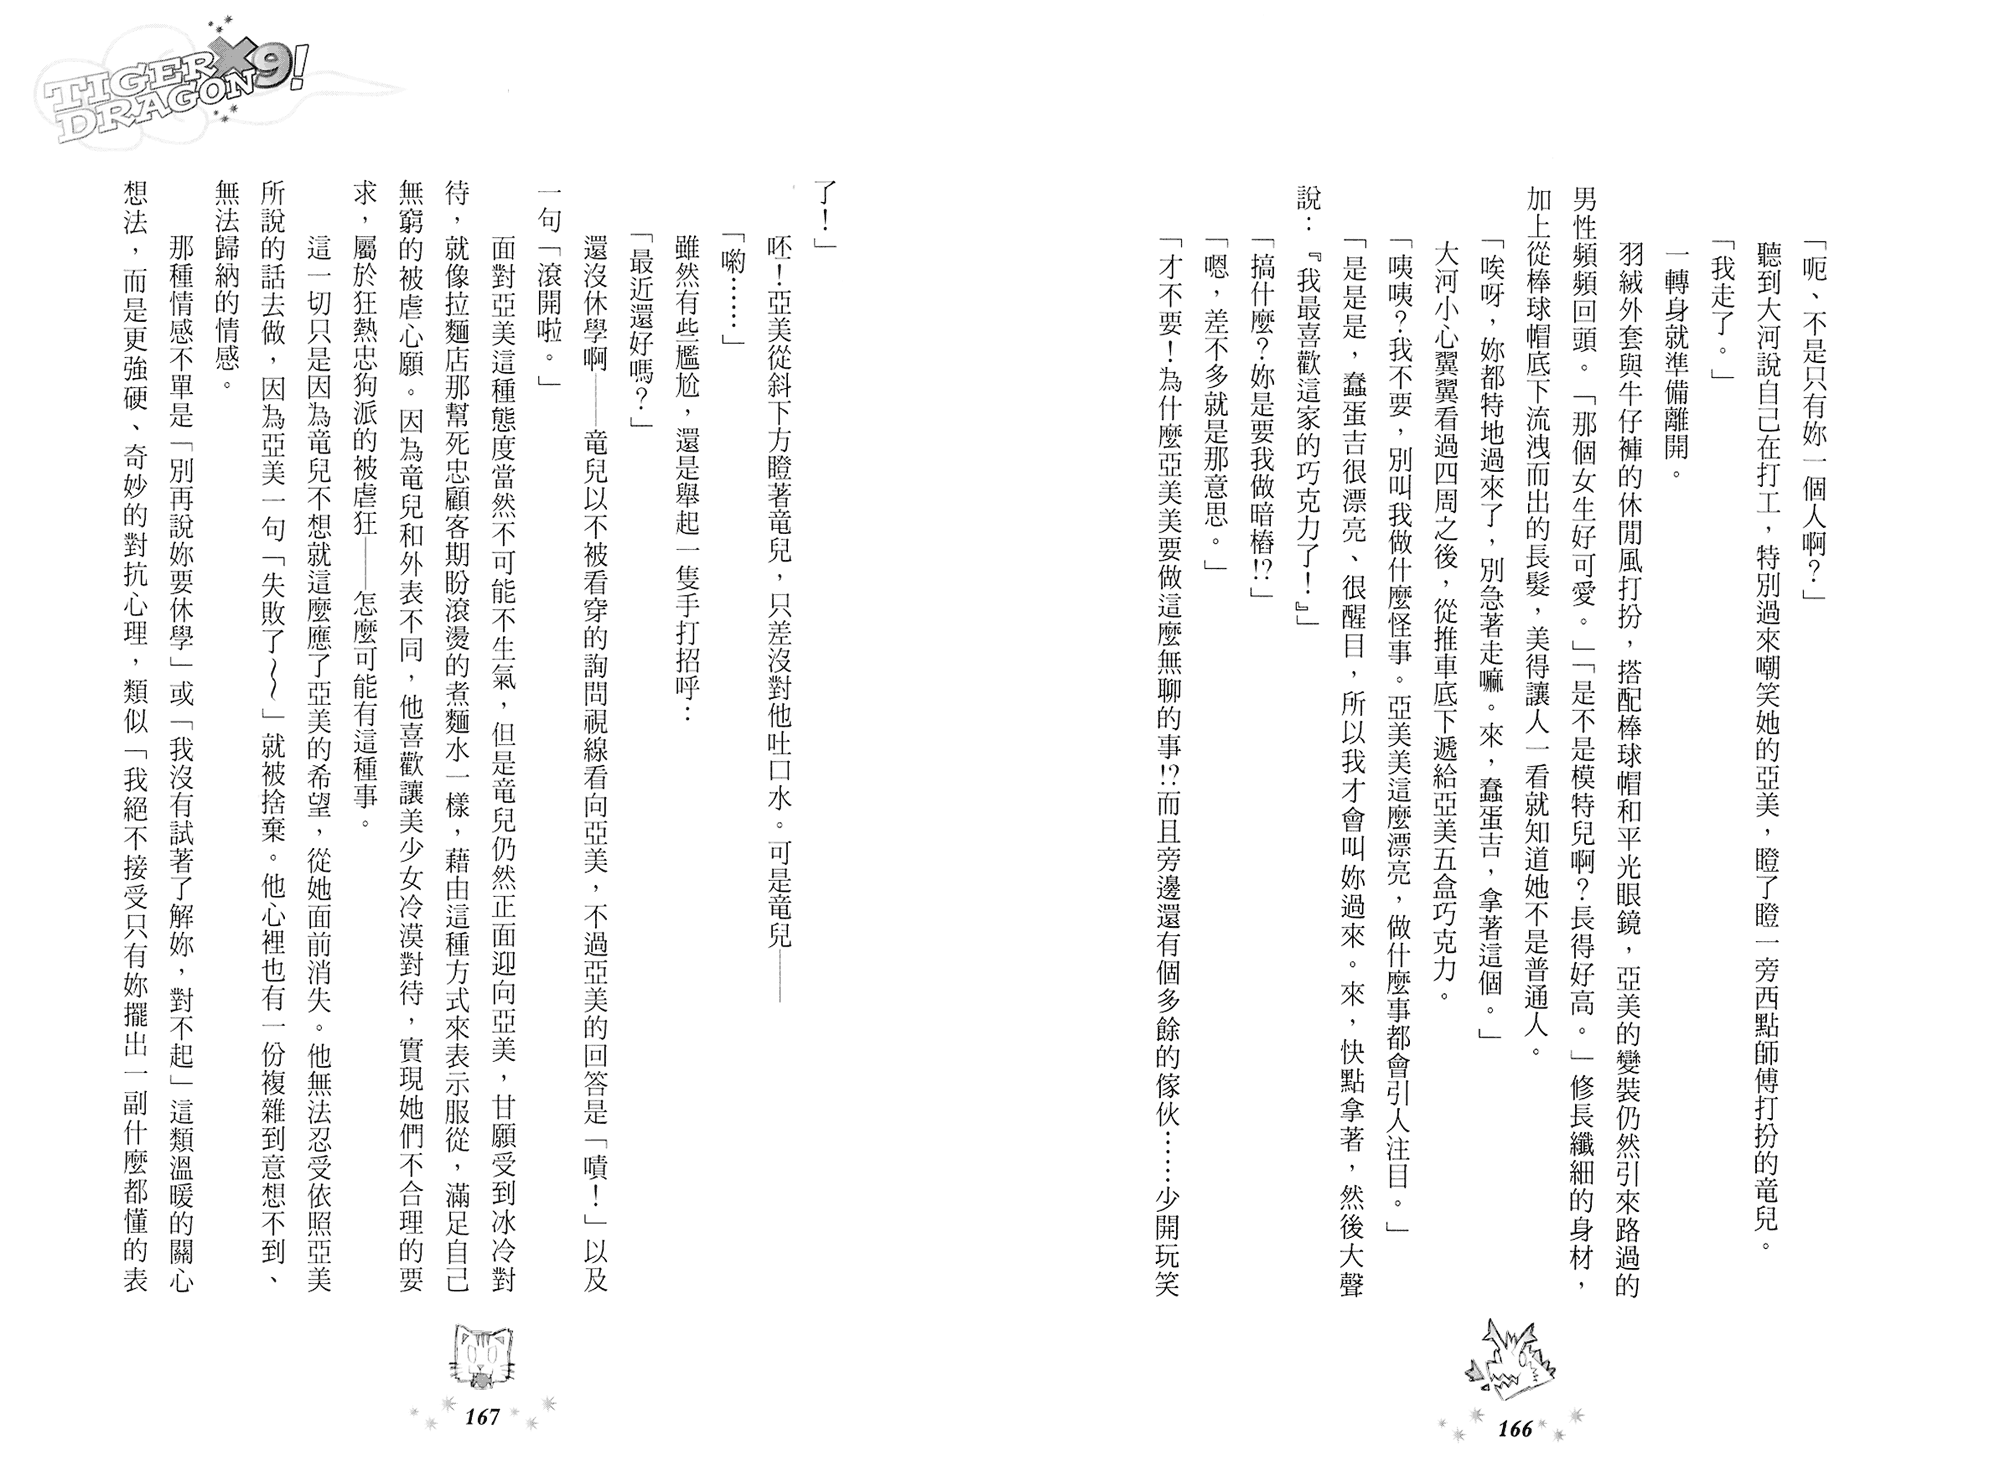 「呃、不是只有妳一個人啊？」
聽到大河說自己在打工，特別過來嘲笑她的亞美，瞪了瞪一旁西點師傅打扮的竜兒。
「我走了。」
一轉身就準備離開。
羽絨外套與牛仔褲的休閒風打扮，搭配棒球帽和平光眼鏡，亞美的變裝仍然引來路過的
男性頻頻回頭。「那個女生好可愛。」「是不是模特兒啊？長得好高。」修長纖細的身材，
加上從棒球帽底下流洩而出的長髮，美得讓人一看就知道她不是普通人。
「唉呀，妳都特地過來了，別急著走嘛。來，蠢蛋吉，拿著這個。」
大河小心翼翼看過四周之後，從推車底下遞給亞美五盒巧克力。
「咦咦？我不要，別叫我做什麼怪事。亞美美這麼漂亮，做什麼事都會引人注目。」
「是是是，蠢蛋吉很漂亮、很醒目，所以我才會叫妳過來。來，快點拿著，然後大聲
說：『我最喜歡這家的巧克力了！』」
「搞什麼？妳是要我做暗樁!?」
「嗯，差不多就是那意思。」
「才不要！為什麼亞美美要做這麼無聊的事!?而且旁邊還有個多餘的傢伙……少開玩笑
166
TIGER×DRAGON9!
了！」
呸！亞美從斜下方瞪著竜兒，只差沒對他吐口水。可是竜兒——
「喲……」
雖然有些尷尬，還是舉起一隻手打招呼：
「最近還好嗎？」
還沒休學啊——竜兒以不被看穿的詢問視線看向亞美，不過亞美的回答是「嘖！」以及
一句「滾開啦。」
面對亞美這種態度當然不可能不生氣，但是竜兒仍然正面迎向亞美，甘願受到冰冷對
待，就像拉麵店那幫死忠顧客期盼滾燙的煮麵水一樣，藉由這種方式來表示服從，滿足自己
無窮的被虐心願。因為竜兒和外表不同，他喜歡讓美少女冷漠對待，實現她們不合理的要
求，屬於狂熱忠狗派的被虐狂——怎麼可能有這種事。
這一切只是因為竜兒不想就這麼應了亞美的希望，從她面前消失。他無法忍受依照亞美
所說的話去做，因為亞美一句「失敗了～～」就被捨棄。他心裡也有一份複雜到意想不到、
無法歸納的情感。
那種情感不單是「別再說妳要休學」或「我沒有試著了解妳，對不起」這類溫暖的關心
想法，而是更強硬、奇妙的對抗心理，類似「我絕不接受只有妳擺出一副什麼都懂的表
167